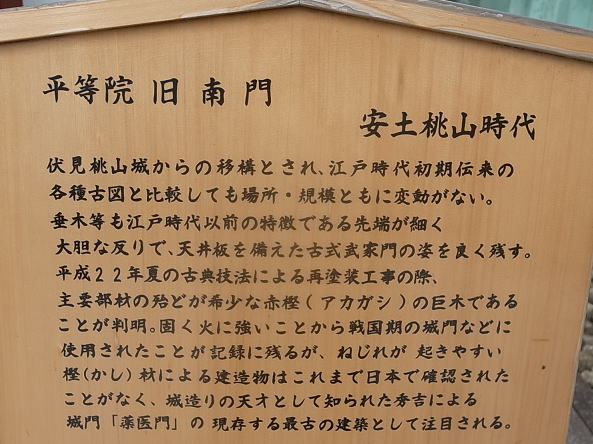 平等院 旧 南 門
安土桃山時代
伏見桃山城からの移構とされ、江戸時代初期伝来の
各種古図と比較しても場所・規模ともに変動がない。
垂木等も江戸時代以前の特徴である先端が細く
大胆な反りで、天井板を備えた古式武家門の姿を良く残す。
平成22年夏の古典技法による再塗装工事の際、
主要部材の殆どが希少な赤樫(アカガシ)の巨木である
ことが判明。固く火に強いことから戦国期の城門などに
使用されたことが記録に残るが、ねじれが 起きやすい
樫(かし)材による建造物はこれまで日本で確認された
ことがなく、城造りの天才として知られた秀吉による
城門「薬医門」の 現存する最古の建築として注目される。